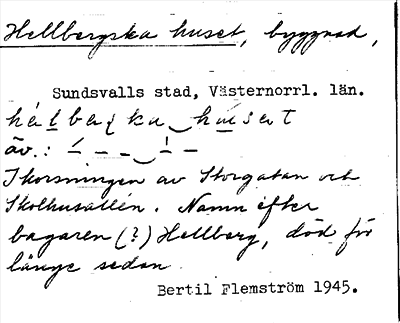 Hellbergska huset, byggnad,
Sundsvalls stad, Västernorrl. län.
av.:
I korsningen av Storgatan och
Skolhusallén. Namn efter
bagaren (?) Hellberg, död för
länge sedan.
Bertil Flemström 1945.